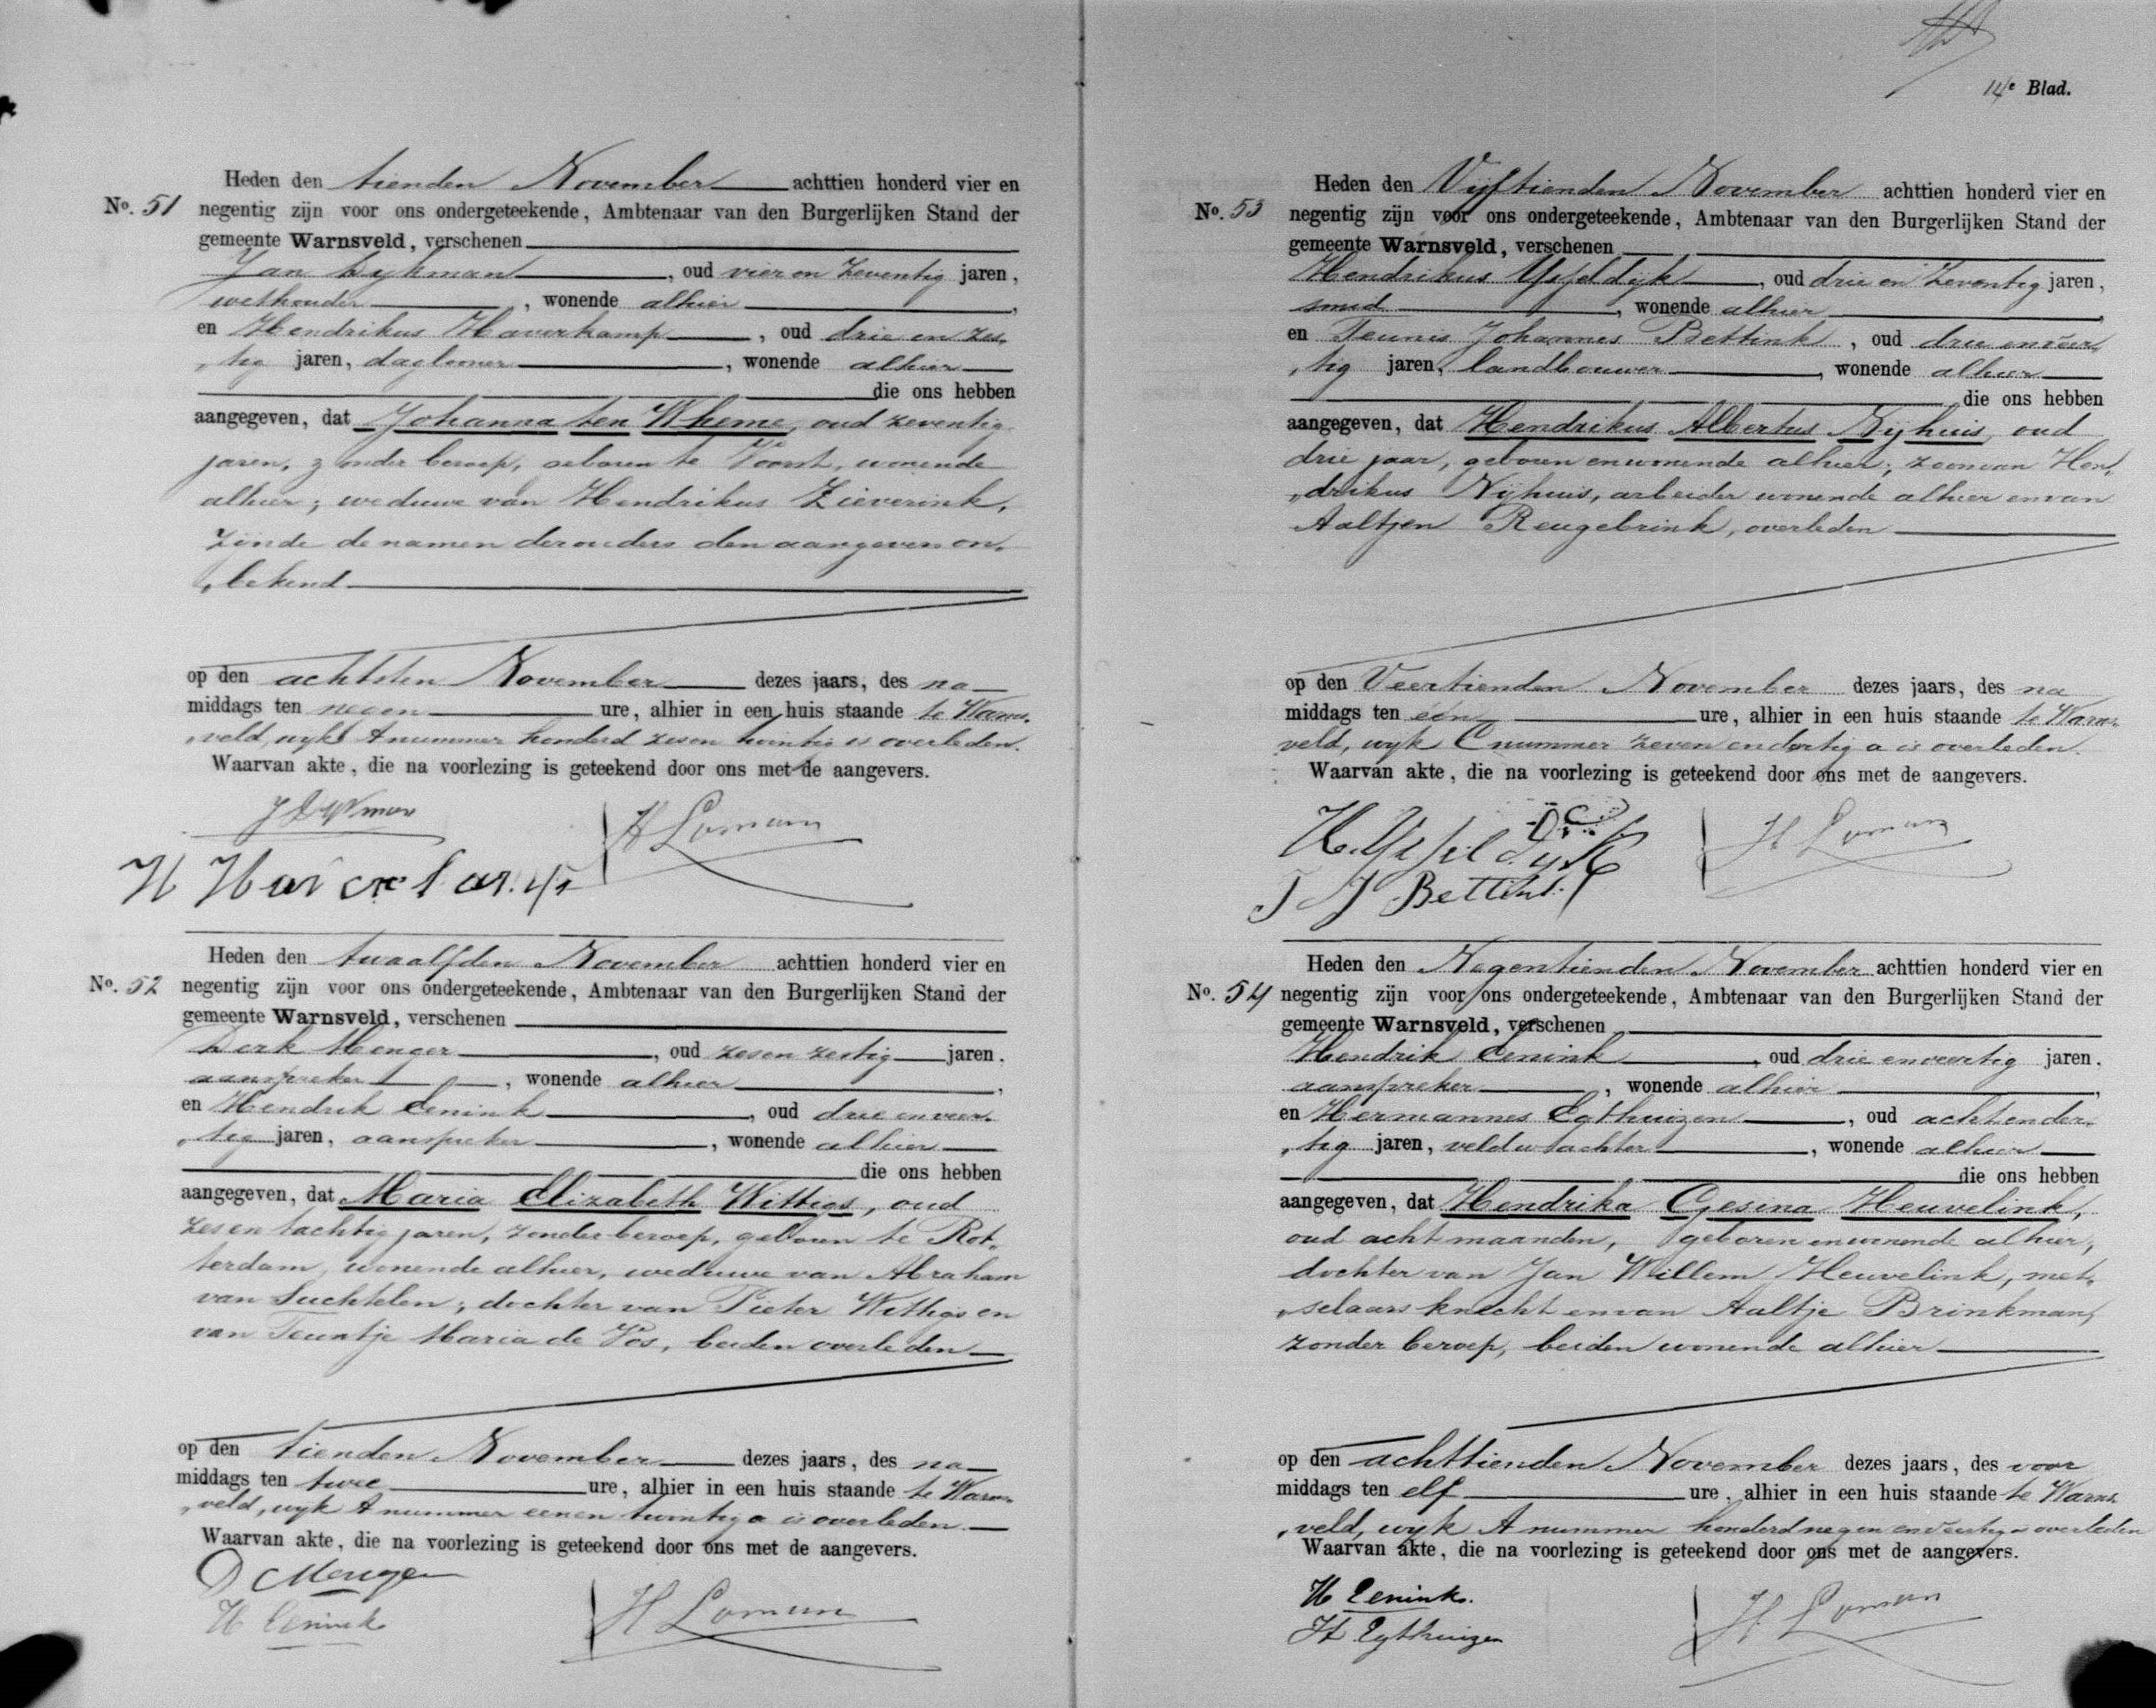 Heden den tienden November achttien honderd vier en
No. 51 negentig zijn voor ons ondergeteekende, Ambtenaar van den Burgerlijken Stand der
gemeente Warnsveld, verschenen
Jan Dykman, oud vier en zeventig jaren,
wethouder, wonende alhier,
en Hendrikus Haverkamp, oud drie en zes„
„tig jaren, daglooner, wonende alhier
die ons hebben
aangegeven, dat Johanna ten Wheme, oud zeventig
jaren, zonder beroep, geboren te Voorst, wonende
alhier; weduwe van Hendrikus Zieverink,
zijnde de namen der ouders den aangevers on„
„bekend
op den achtsten November dezes jaars, des na
middags ten negen ure, alhier in een huis staande te Warns„
„veld, wyk A nummer honderd zes en twintig is overleden.
Waarvan akte, die na voorlezing is geteekend door ons met de aangevers.
J Dykman
H Loman
H Haverkamp
Heden den twaalfden November achttien honderd vier en
No. 52 negentig zijn voor ons ondergeteekende, Ambtenaar van den Burgerlijken Stand der
gemeente Warnsveld, verschenen
Derk Menger, oud zes en zestig jaren.
aanspreker, wonende alhier,
en Hendrik Eenink, oud drie en veer„
„tig jaren, aanspreker, wonende alhier
die ons hebben
aangegeven, dat Maria Elizabeth Withgs, oud
zes en tachtig jaren, zonder beroep, geboren te Rot„
terdam, wonende alhier, weduwe van Abraham
van Suchtelen; dochter van Pieter Withgs en
van Teuntje Maria de Vos, beiden overleden
op den tienden November dezes jaars, des na
middags ten twee ure, alhier in een huis staande te Warns„
„veld, wyk A nummer een en twintig a is overleden.
Waarvan akte, die na voorlezing is geteekend door ons met de aangevers.
D Menger
H Eenink
H Loman
14e Blad.
Heden den Vijftienden November achttien honderd vier en
No. 53 negentig zijn voor ons ondergeteekende, Ambtenaar van den Burgerlijken Stand der
gemeente Warnsveld, verschenen
Hendrikus Ysseldyk, oud drie en zeventig jaren,
smid, wonende alhier,
en Teunis Johannes Bettink, oud drie en veer„
„tig jaren, landbouwer, wonende alhier
die ons hebben
aangegeven, dat Hendrikus Albertus Nijhuis, oud
drie jaar, geboren en wonende alhier; zoon van Hen„
„drikus Nijhuis, arbeider wonende alhier en van
Aaltjen Reugebrink, overleden
op den Veertienden November dezes jaars, des na
middags ten één ure, alhier in een huis staande te Warns„
veld, wyk C nummer zeven en dertig a is overleden.
Waarvan akte, die na voorlezing is geteekend door ons met de aangevers.
H. Ysseldyk
H Loman
T J Bettink
Heden den Negentienden November achttien honderd vier en
No. 54 negentig zijn voor ons ondergeteekende, Ambtenaar van den Burgerlijken Stand der
gemeente Warnsveld, verschenen
Hendrik Eenink, oud drie en veertig jaren.
aanspreker, wonende alhier,
en Hermannes Egthuizen, oud acht en der„
„tig jaren, veldwachter, wonende alhier
die ons hebben
aangegeven, dat Hendrika Gesina Heuvelink,
oud acht maanden, geboren en wonende alhier,
dochter van Jan Willem Heuvelink, met„
„selaars knecht en van Aaltje Brinkman,
zonder beroep, beiden wonende alhier
op den achttienden November dezes jaars, des voor
middags ten elf ure, alhier in een huis staande te Warns„
„veld, wyk A nummer honderd negen en veertig is overleden
Waarvan akte, die na voorlezing is geteekend door ons met de aangevers.
H Eenink.
H Egthuizen
H Loman